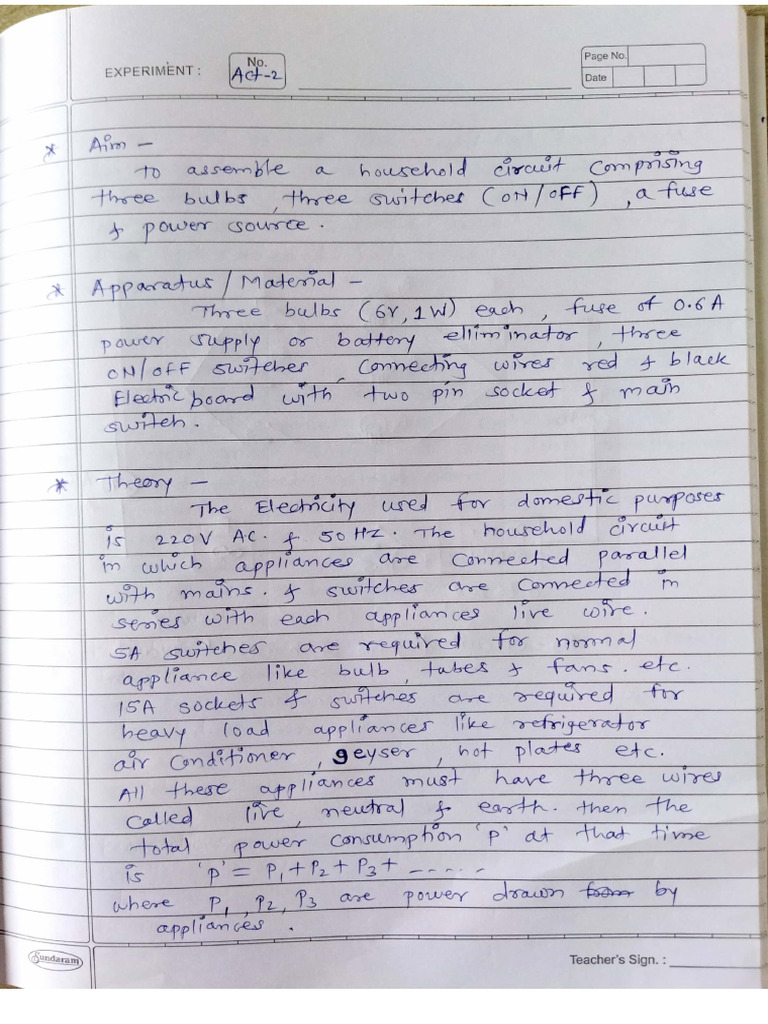 EXPERIMENT :
No.
Act-2
Page No.
Date
* Aim -
To assemble a household circuit comprising
three bulbs, three switches (ON/OFF), a fuse
& power source.
* Apparatus / Material -
Three bulbs (6V, 1W) each, fuse of 0.6A
power supply or battery elliminator, three
ON/OFF switches, Connecting wires red & black
Electric board with two pin socket & main
switch.
* Theory -
The Electricity used for domestic purposes
is 220V AC. & 50HZ. The household circuit
in which appliances are connected parallel
with mains. & switches are connected in
series with each appliances live wire.
5A switches are required for normal
appliance like bulb, tubes & fans. etc.
15A sockets & switches are required for
heavy load appliances like refrigerator
air conditioner, geyser, hot plates etc.
All these appliances must have three wires
called live, neutral & earth. then the
total power consumption 'p' at that time
is 'p' = P1 + P2 + P3 + ......
where P1, P2, P3 are power drawn from by
appliances.
Sundaram
Teacher's Sign. :